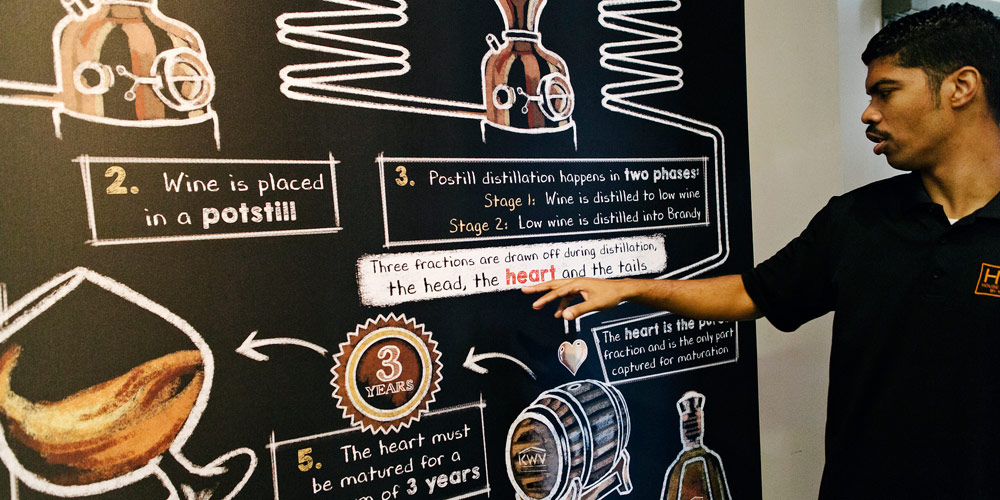 2. Wine is placed
in a potstill
3. Postill distillation happens in two phases:
Stage 1: Wine is distilled to low wine
Stage 2: Low wine is distilled into Brandy
Three fractions are drawn off during distillation,
the head, the heart and the tails
The heart is the
fraction and is the only part
captured for maturation
3
YEARS
5. The heart must
be matured for a
of 3 years
KWV
H